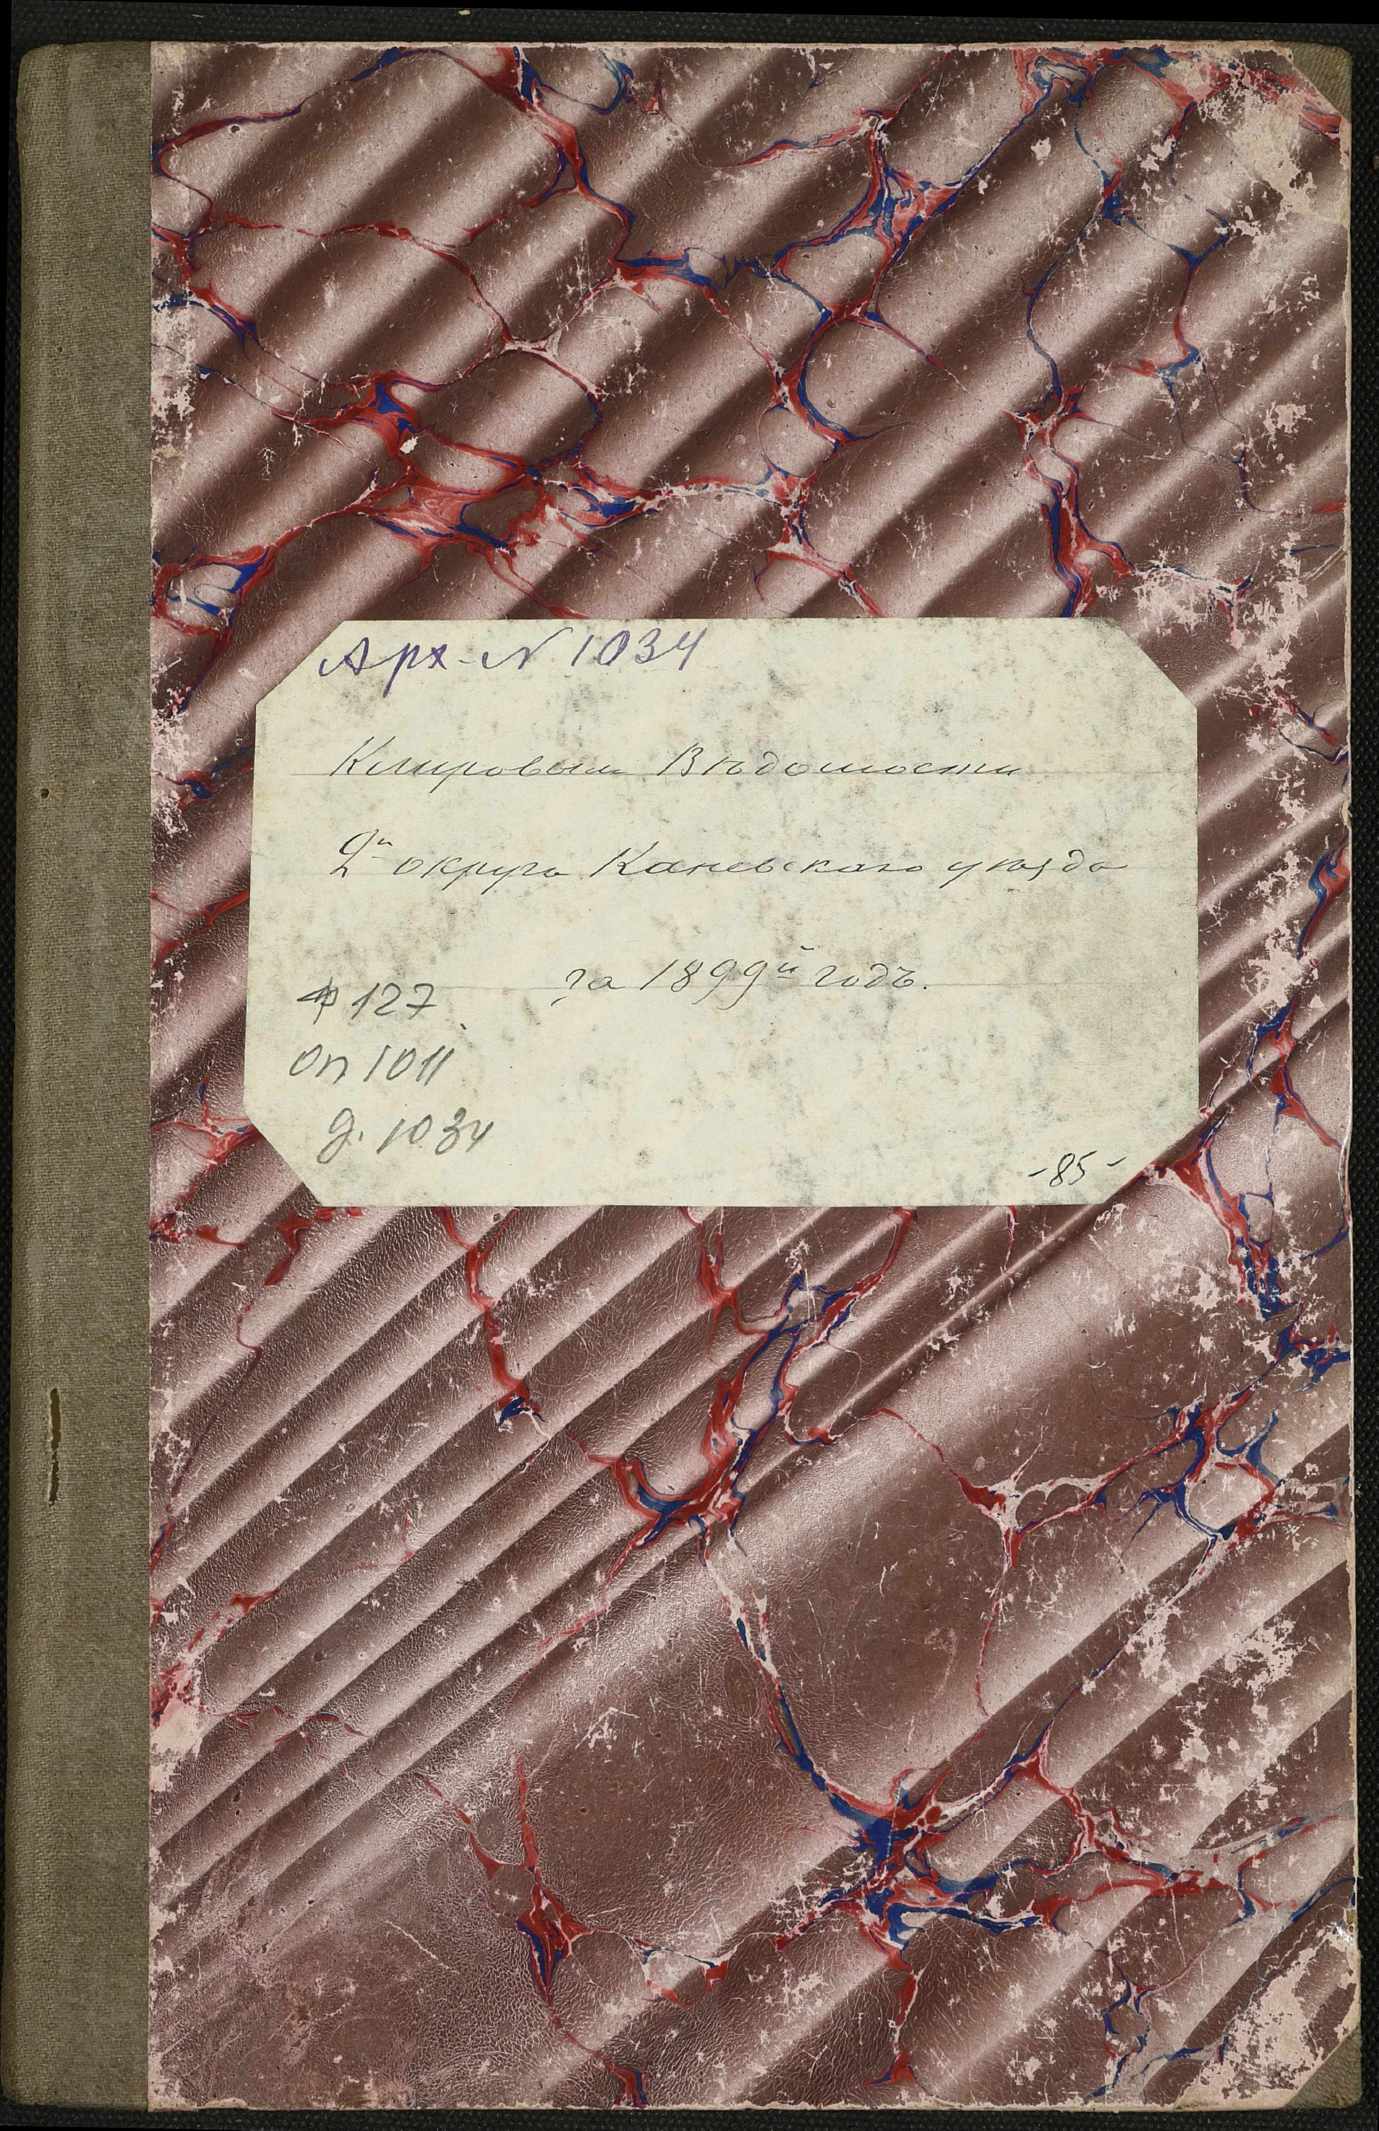 Арх. № 1034
Клировыя Вѣдомости
2й округа Каневскаго уѣзда
за 1899й годъ.
Ф 127
Оп 1011
д. 1034
-85-